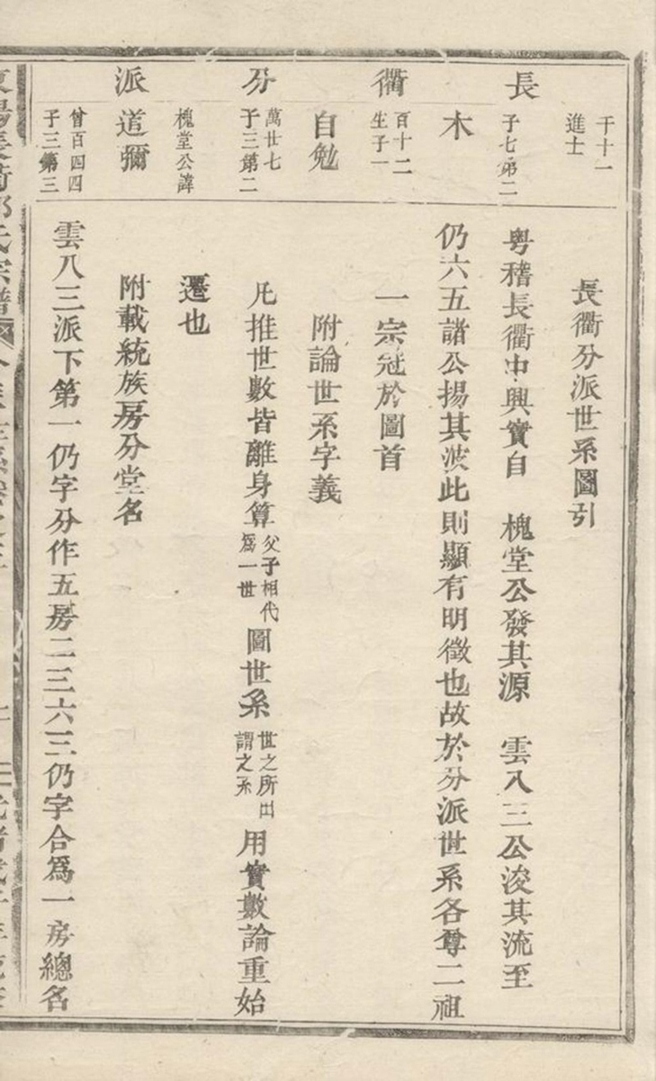 干十一
進士
長
子七第二
木
衢
百十二
生子一
自勉
分
萬廿七
子三第二
槐堂公諱
派
道彌
曾百四四
子三第三
長衢分派世系圖引
粵稽長衢中興實自 槐堂公發其源 雲八三公浚其流至
仍六五諸公揚其波此則顯有明徵也故於分派世系各尊二祖
一宗冠於圖首
附論世系字義
凡推世數皆離身算父子相代爲一世圖世系世之所出謂之系用實數論重始
遷也
附載統族房分堂名
雲八三派下第一仍字分作五房二三六三仍字合爲一房總名